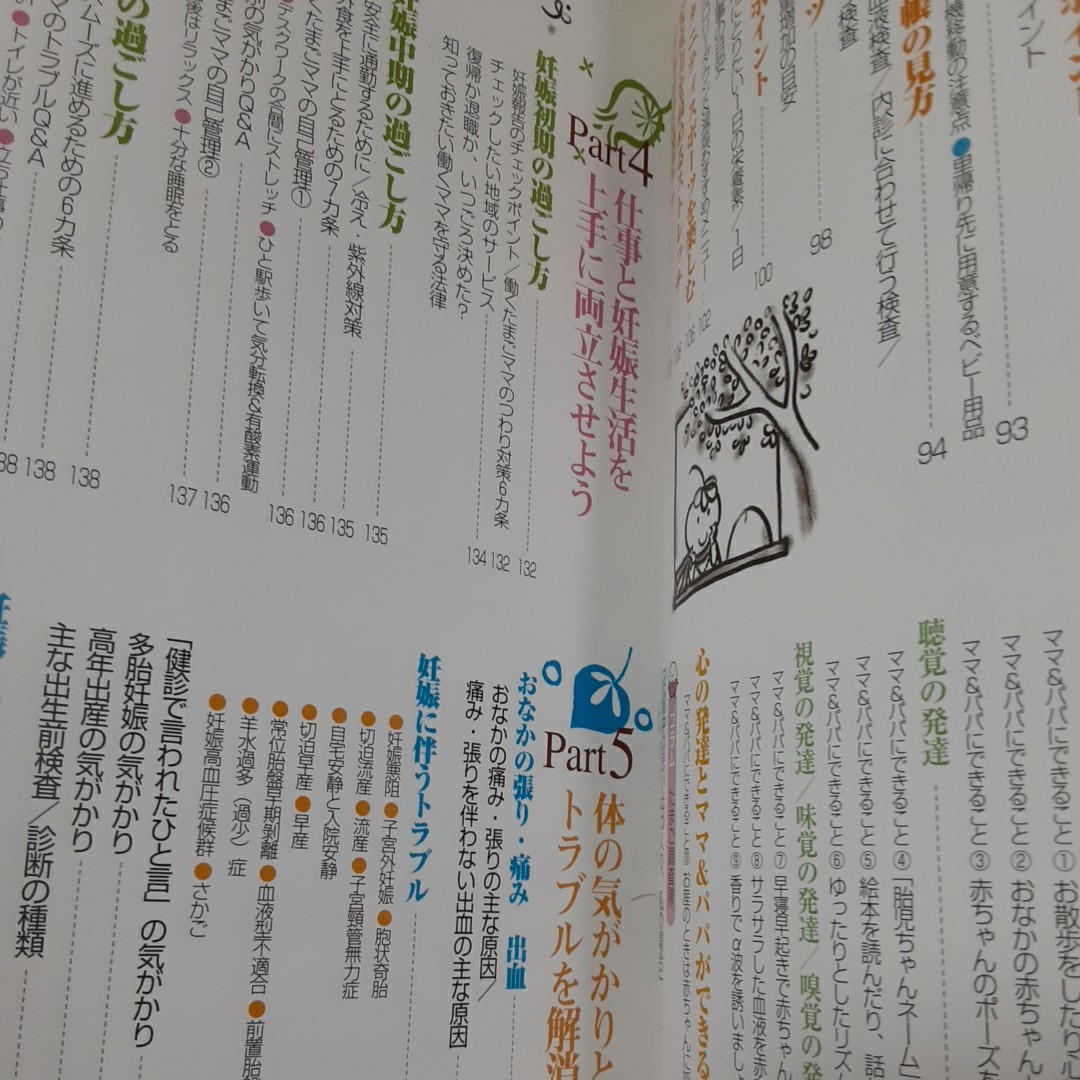 ポイント
機移動の注意点 ●里帰り先に用意するベビー用品
93
帳の見方
94
血液検査/内診に合わせて行う検査/
検査
98
ポイント
にとりたい1日の栄養素/1日
100
102
106
108
聴覚の発達
ママ&パパにできること① お散歩をしたり心
ママ&パパにできること② おなかの赤ちゃん
ママ&パパにできること③ 赤ちゃんのポーズを
ママ&パパにできること④ 「胎児ちゃんネーム」
ママ&パパにできること⑤ 絵本を読んだり、話
ママ&パパにできること⑥ ゆったりとしたリズム
視覚の発達/味覚の発達/嗅覚の発
ママ&パパにできること⑦ 早寝早起きで赤ちゃん
ママ&パパにできること⑧ サラサラした血液を赤
ママ&パパにできること⑨ 香りでα波を誘いまし
心の発達とママ&パパができる
Part4
仕事と妊娠生活を
上手に両立させよう
妊娠初期の過ごし方
妊娠報告のチェックポイント/働くたまごママのつわり対策6カ条
132
チェックしたい地域のサービス
132
復帰か退職か、いつごろ決めた?
134
知っておきたい働くママを守る法律
妊娠中期の過ごし方
135
安全に通勤するために/冷え、紫外線対策
135
外食を上手にとるための7カ条
136
たまごママの自己管理①
136
デスクワークの合間にストレッチ ●ひと駅歩いて気分転換&有酸素運動
別の気がかりQ&A
136
まごママの自己管理②
137
後はリラックス ●十分な睡眠をとる
の過ごし方
138
ムーズに進めるための6カ条
138
マのトラブルQ&A
138
●トイレが近い
Part5
体の気がかりと
トラブルを解消
おなかの張り・痛み 出血
おなかの痛み・張りの主な原因/
痛み・張りを伴わない出血の主な原因
妊娠に伴うトラブル
●妊娠悪阻 ●子宮外妊娠 ●胞状奇胎
●切迫流産 ●流産 ●子宮頸管無力症
●自宅安静と入院安静
●切迫早産 ●早産
●常位胎盤早期剥離 ●血液型不適合 ●前置胎
●羊水過多(過少)症
●妊娠高血圧症候群 ●さかご
「健診で言われたひと言」の気がかり
多胎妊娠の気がかり
高年出産の気がかり
主な出生前検査/診断の種類